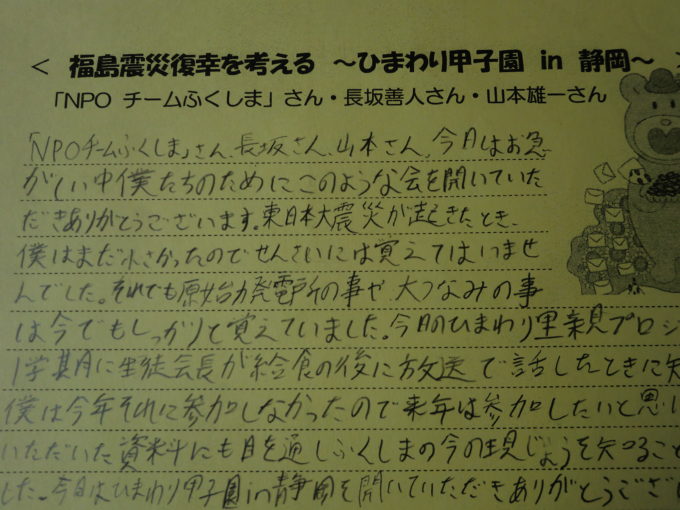 ＜ 福島震災復幸を考える ～ひまわり甲子園 in 静岡～ ＞
「NPO チームふくしま」さん・長坂善人さん・山本雄一さん
「NPOチームふくしま」さん、長坂さん、山本さん、今日はお急
がしい中僕たちのためにこのような会を開いていた
だきありがとうございます。東日本大震災が起きたとき、
僕はまだ小さかったのでせんさいには覚えてはいませ
んでした。それでも原始力発電所の事や大つなみの事
は今でもしっかりと覚えていました。今日のひまわり里親プロジ
1学期に生徒会長が給食の後に放送で話したときに知
僕は今年それに参加しなかったので来年は参加したいと思い
いただいた資料にも目を通しふくしまの今の現じょうを知ること
した。今日はひまわり甲子園in静岡を開いていただきありがとうござい